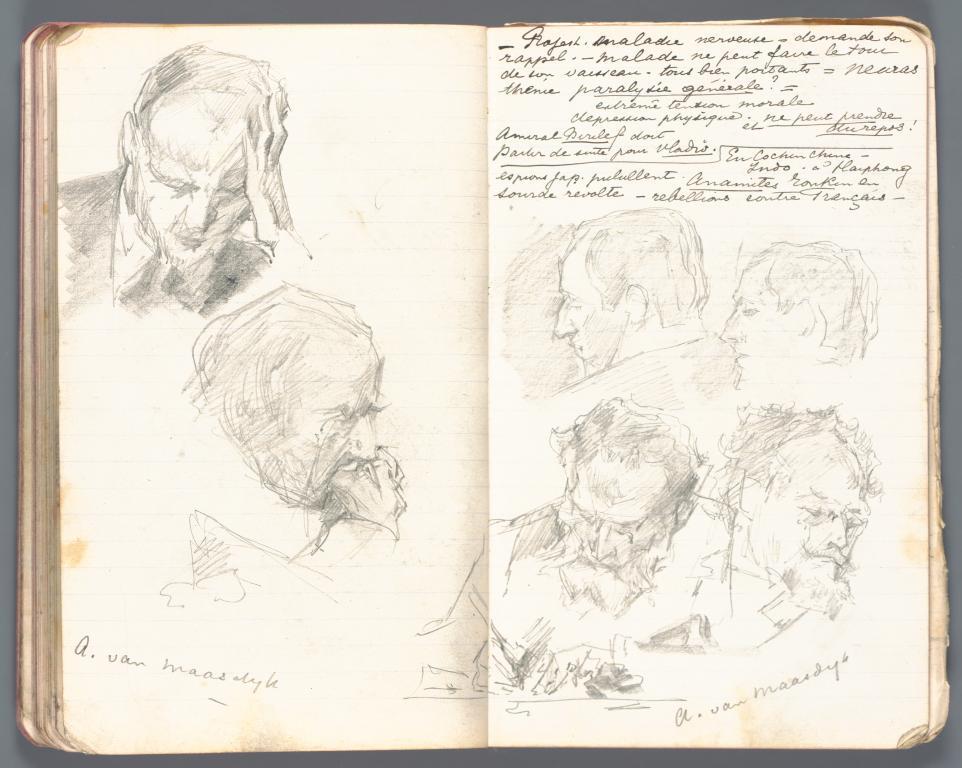 A. van Maasdyk
– Rojest. maladie nerveuse = demande son
rappel. – malade ne peut faire le tour
de son vaisseau. tous bien portants = neuras
thénie paralysie générale? =
extrême tension morale
depression physique. ne peut prendre
et du repos!
Amiral Birilef doit
partir de suite pour Vladiv.
En Cochinchine –
Indo. à Haiphong
espions jap. pullullent. Anamites Tonkin en
sourde révolte – rebellions contre Français –
A. van Maasdyk